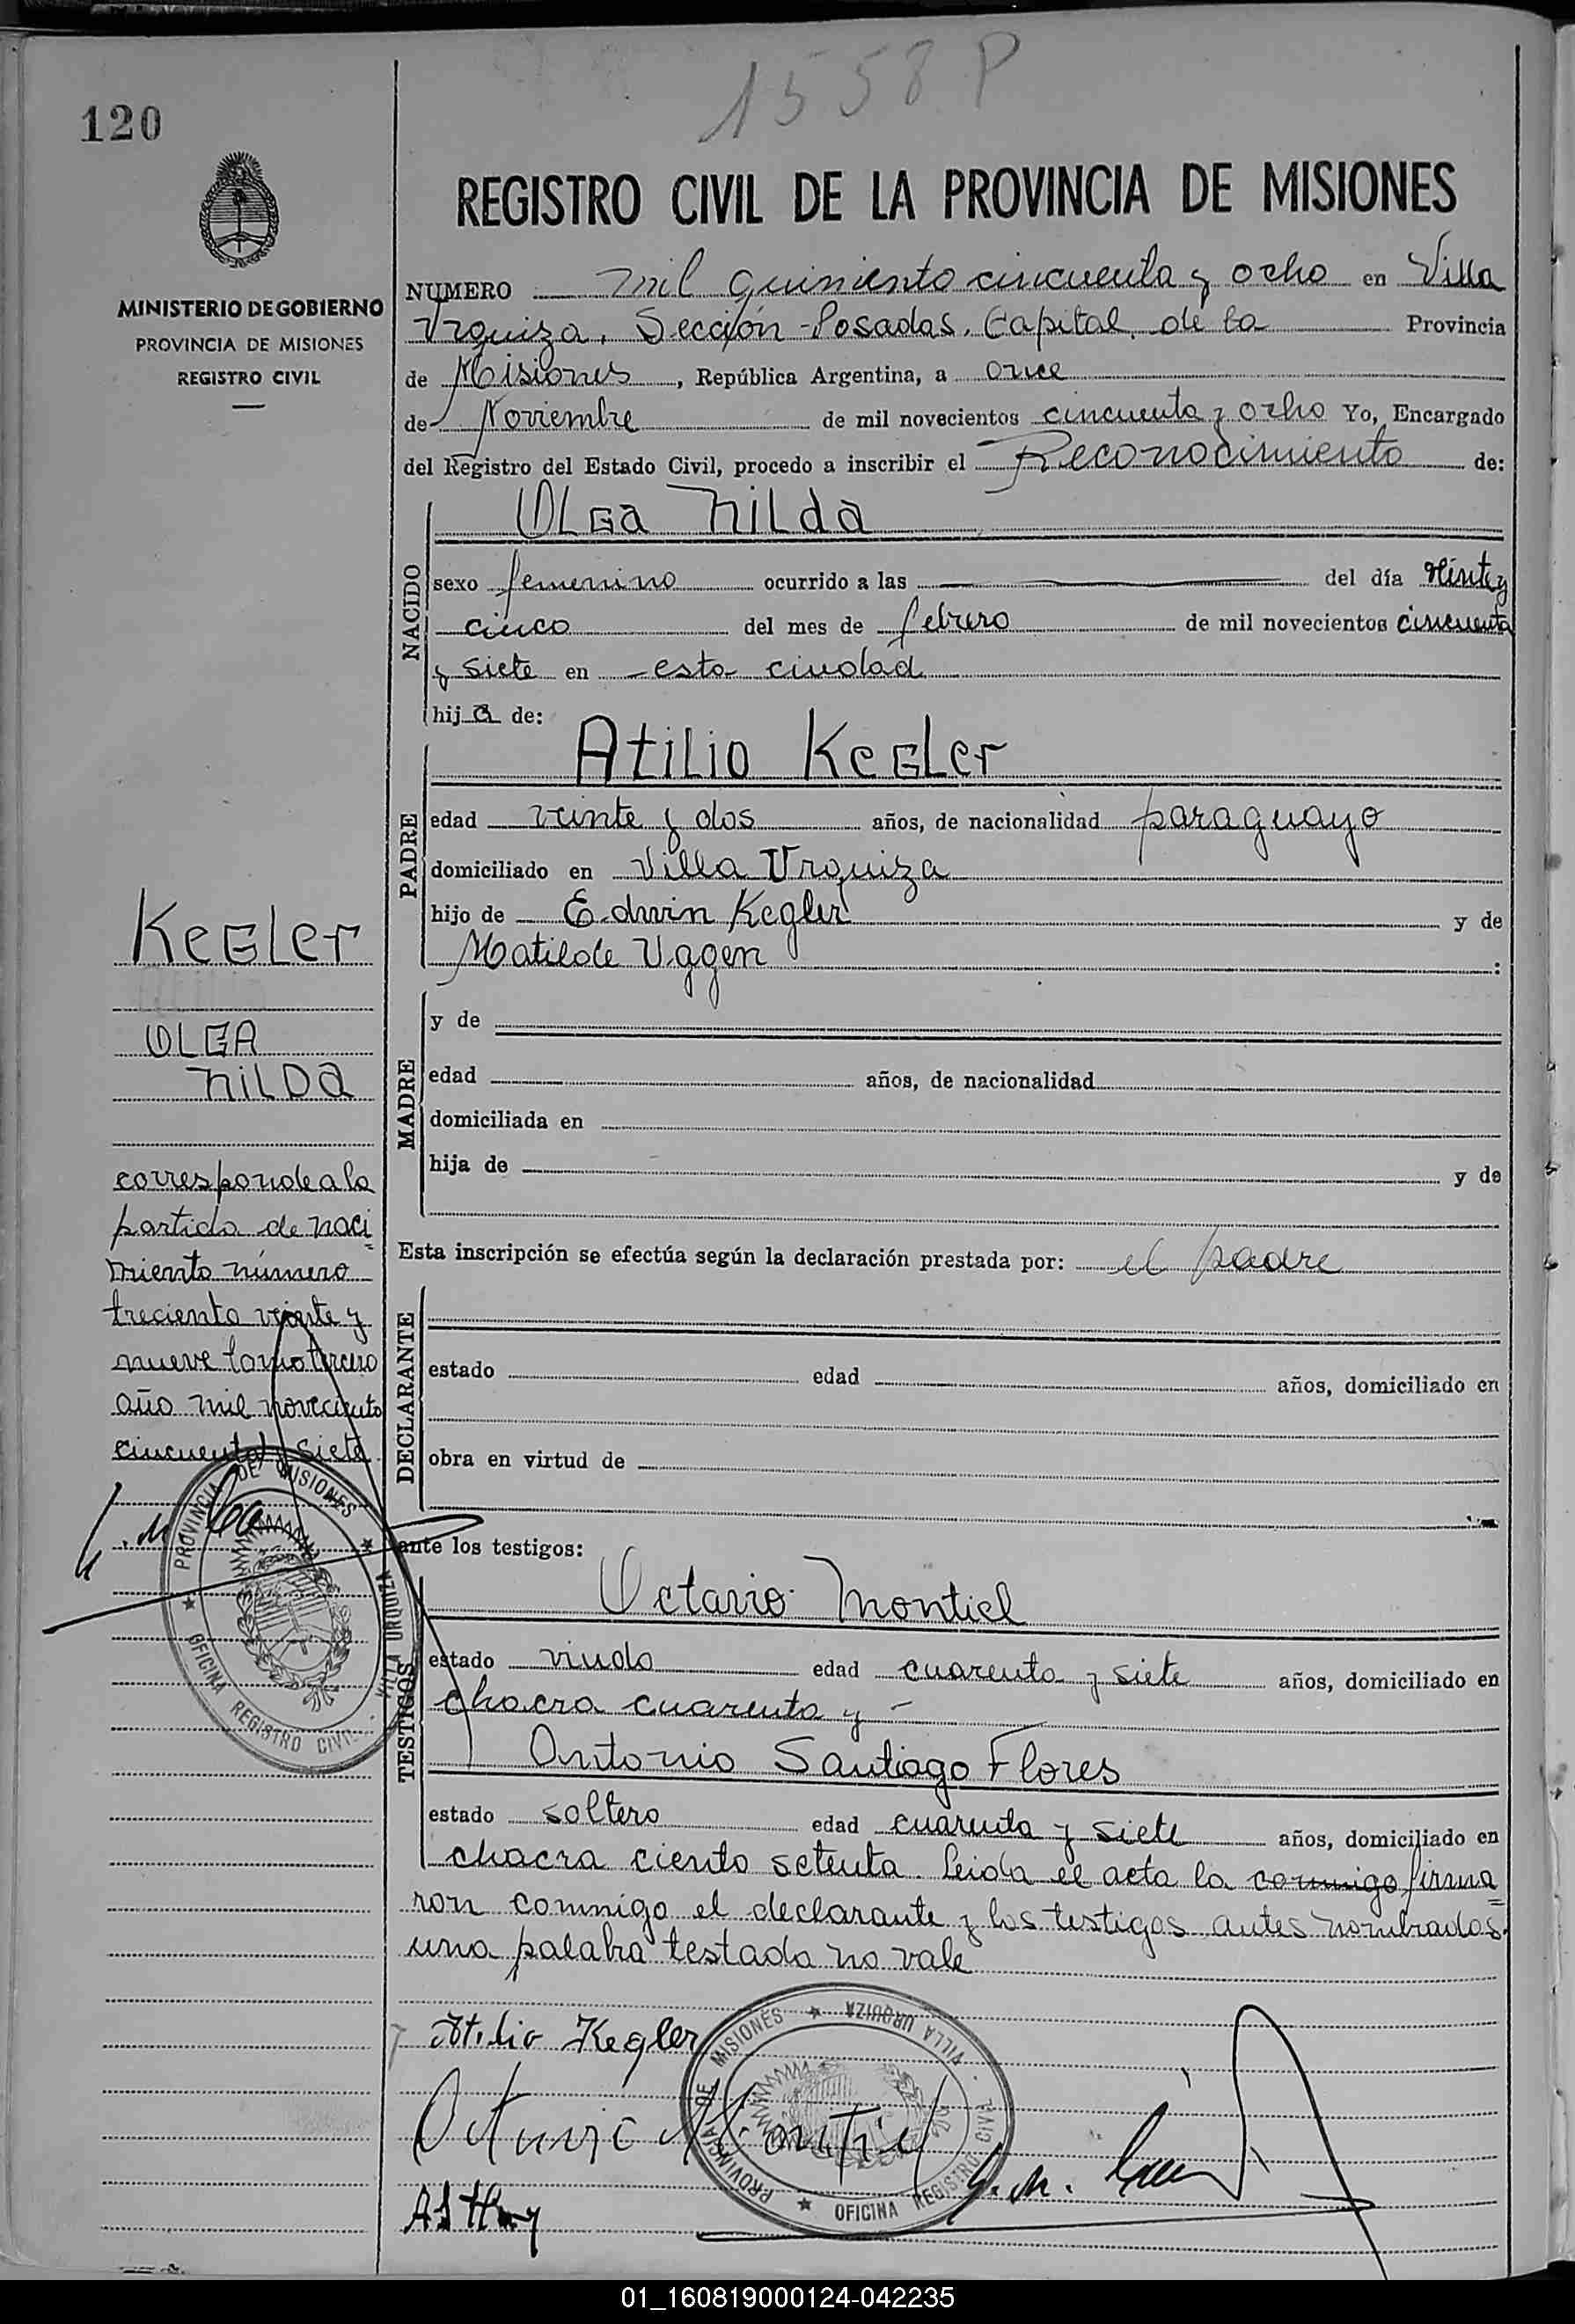 1558 P
120
REGISTRO CIVIL DE LA PROVINCIA DE MISIONES
MINISTERIO DE GOBIERNO
PROVINCIA DE MISIONES
REGISTRO CIVIL
NUMERO mil quiniento cincuenta y ocho en Villa
Urquiza, Sección Posadas, Capital de la Provincia
de Misiones, República Argentina, a once
de Noviembre de mil novecientos cincuenta y ocho Yo, Encargado
del Registro del Estado Civil, procedo a inscribir el Reconocimiento de:
NACIDO
OLGa NiLda
sexo femenino ocurrido a las del día veinte y
cinco del mes de febrero de mil novecientos cincuenta
y siete en esta ciudad
hija de:
PADRE
AtiLio KeGLer
edad veinte y dos años, de nacionalidad paraguayo
domiciliado en Villa Urquiza
hijo de Edwin Kegler y de
Matilde Uggen :
MADRE
y de
edad años, de nacionalidad
domiciliada en
hija de y de
Esta inscripción se efectúa según la declaración prestada por: el padre
DECLARANTE
estado edad años, domiciliado en
obra en virtud de
ante los testigos:
TESTIGOS
Octavio Montiel
estado viudo edad cuarenta y siete años, domiciliado en
chacra cuarenta y -
Antonio Santiago Flores
estado soltero edad cuarenta y siete años, domiciliado en
chacra ciento setenta. Leida el acta la conmigo firma=
ron conmigo el declarante y los testigos antes nombrados.
una palabra testada no vale
KeGLer
OLGA
NiLDa
corresponde a la
partida de naci=
miento número
treciento veinte y
nueve tomo tercero
año mil noveciento
cincuenta y siete.
PROVINCIA DE MISIONES
OFICINA REGISTRO CIVIL - VILLA URQUIZA
Atilio Kegler
Octavio Montiel
PROVINCIA DE MISIONES
OFICINA REGISTRO CIVIL - VILLA URQUIZA
01_160819000124-042235